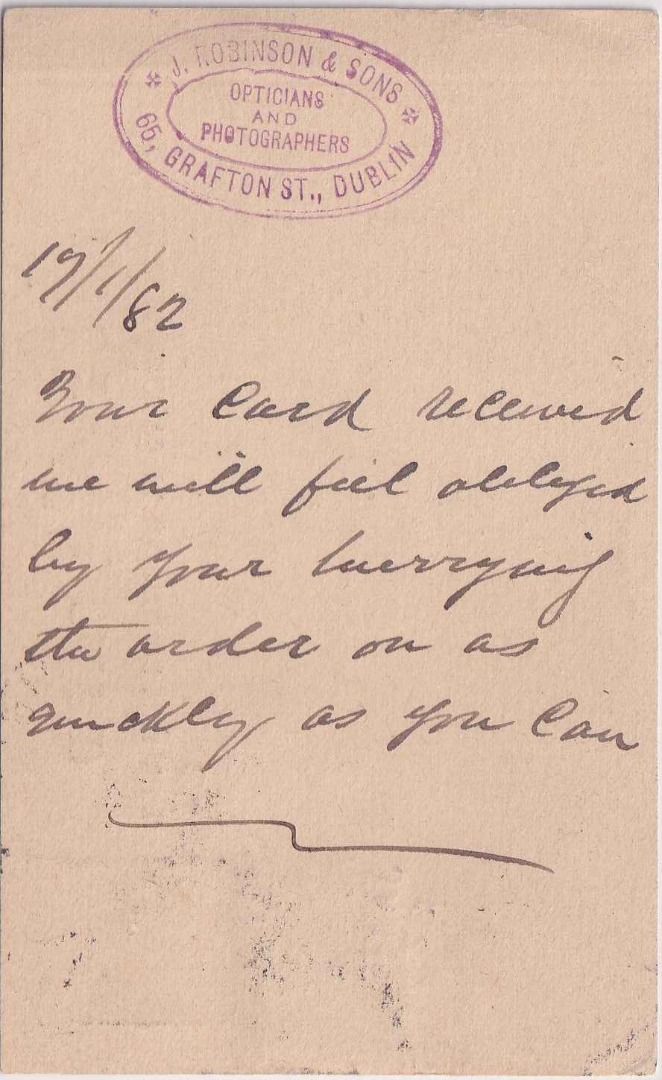 J. ROBINSON & SONS
OPTICIANS
AND
PHOTOGRAPHERS
65, GRAFTON ST., DUBLIN
19/1/82
Your Card received
we will feel obliged
by your hurrying
the order on as
quickly as you Can